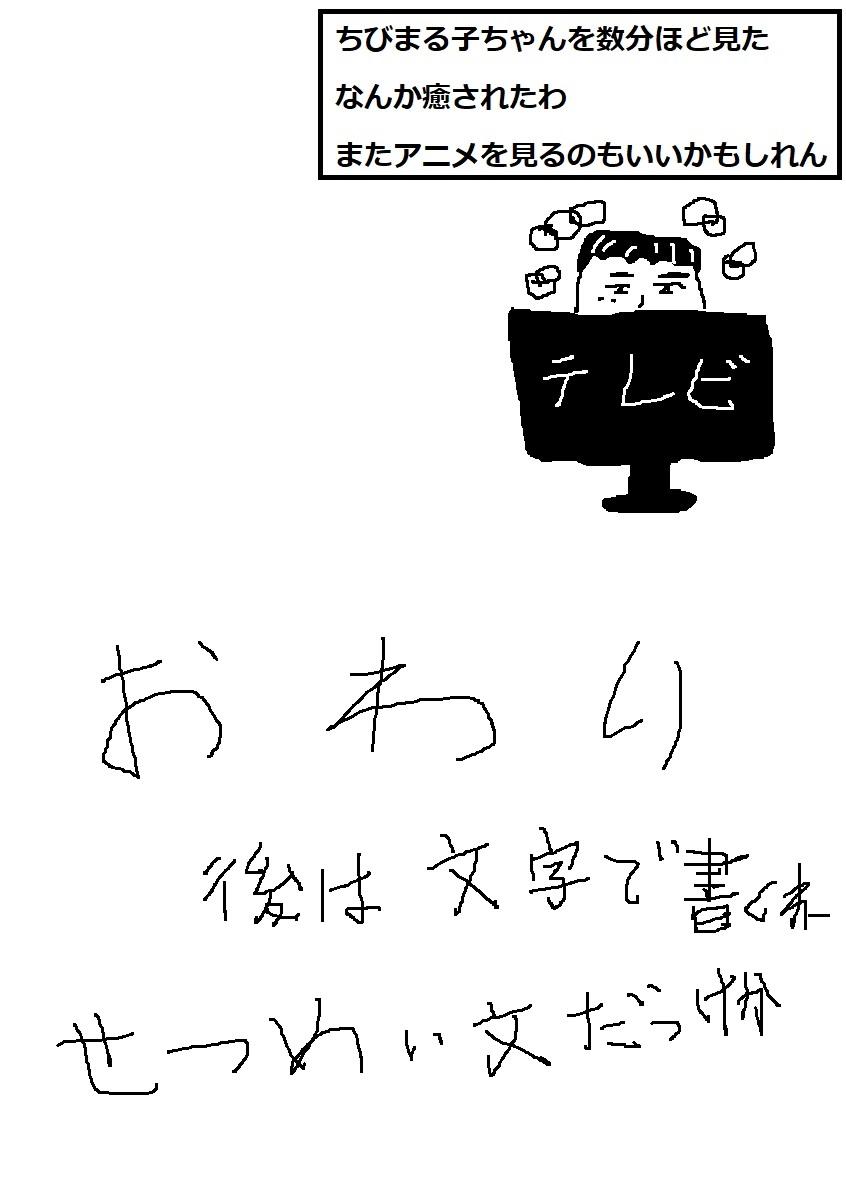 ちびまる子ちゃんを数分ほど見た
なんか癒されたわ
またアニメを見るのもいいかもしれん
テレビ
おわり
後は文字で書くわ
せつめい文だっけか